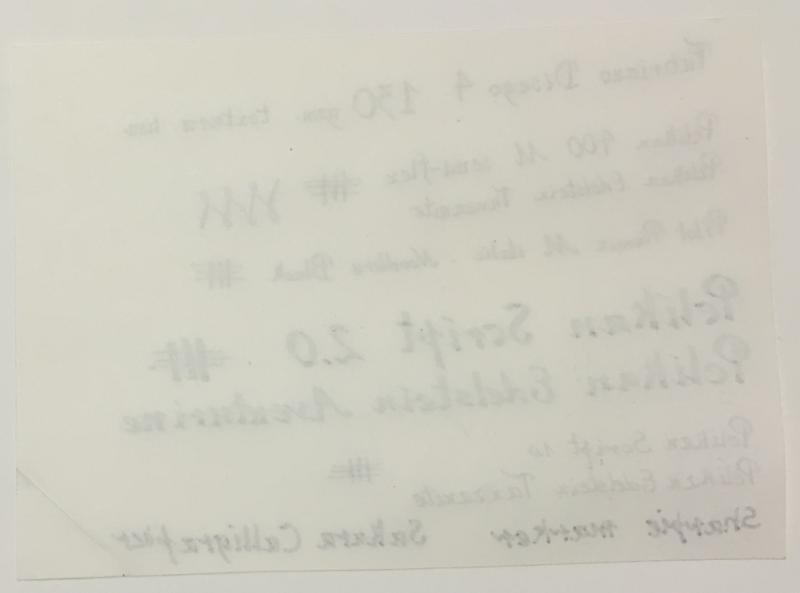 Fabriano Disegno 4 130 gsm textura lisa
Pelikan 400 M semi-flex
Pelikan Edelstein Tanzanite
Pilot Penmanship M italic Noodlers Black
Pelikan Script 2.0
Pelikan Edelstein Aventurine
Pelikan Script 1.0
Pelikan Edelstein Tanzanite
Sharpie marker Sakura Calligrapher